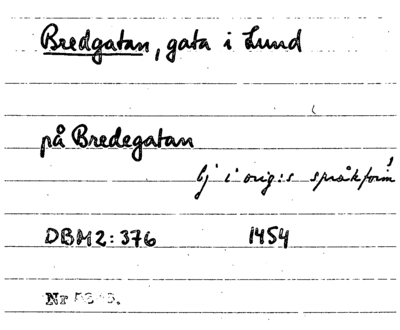 Bredgatan, gata i Lund
på Bredegatan
ej i orig:s språkform
DBM2:376 1454
Nr